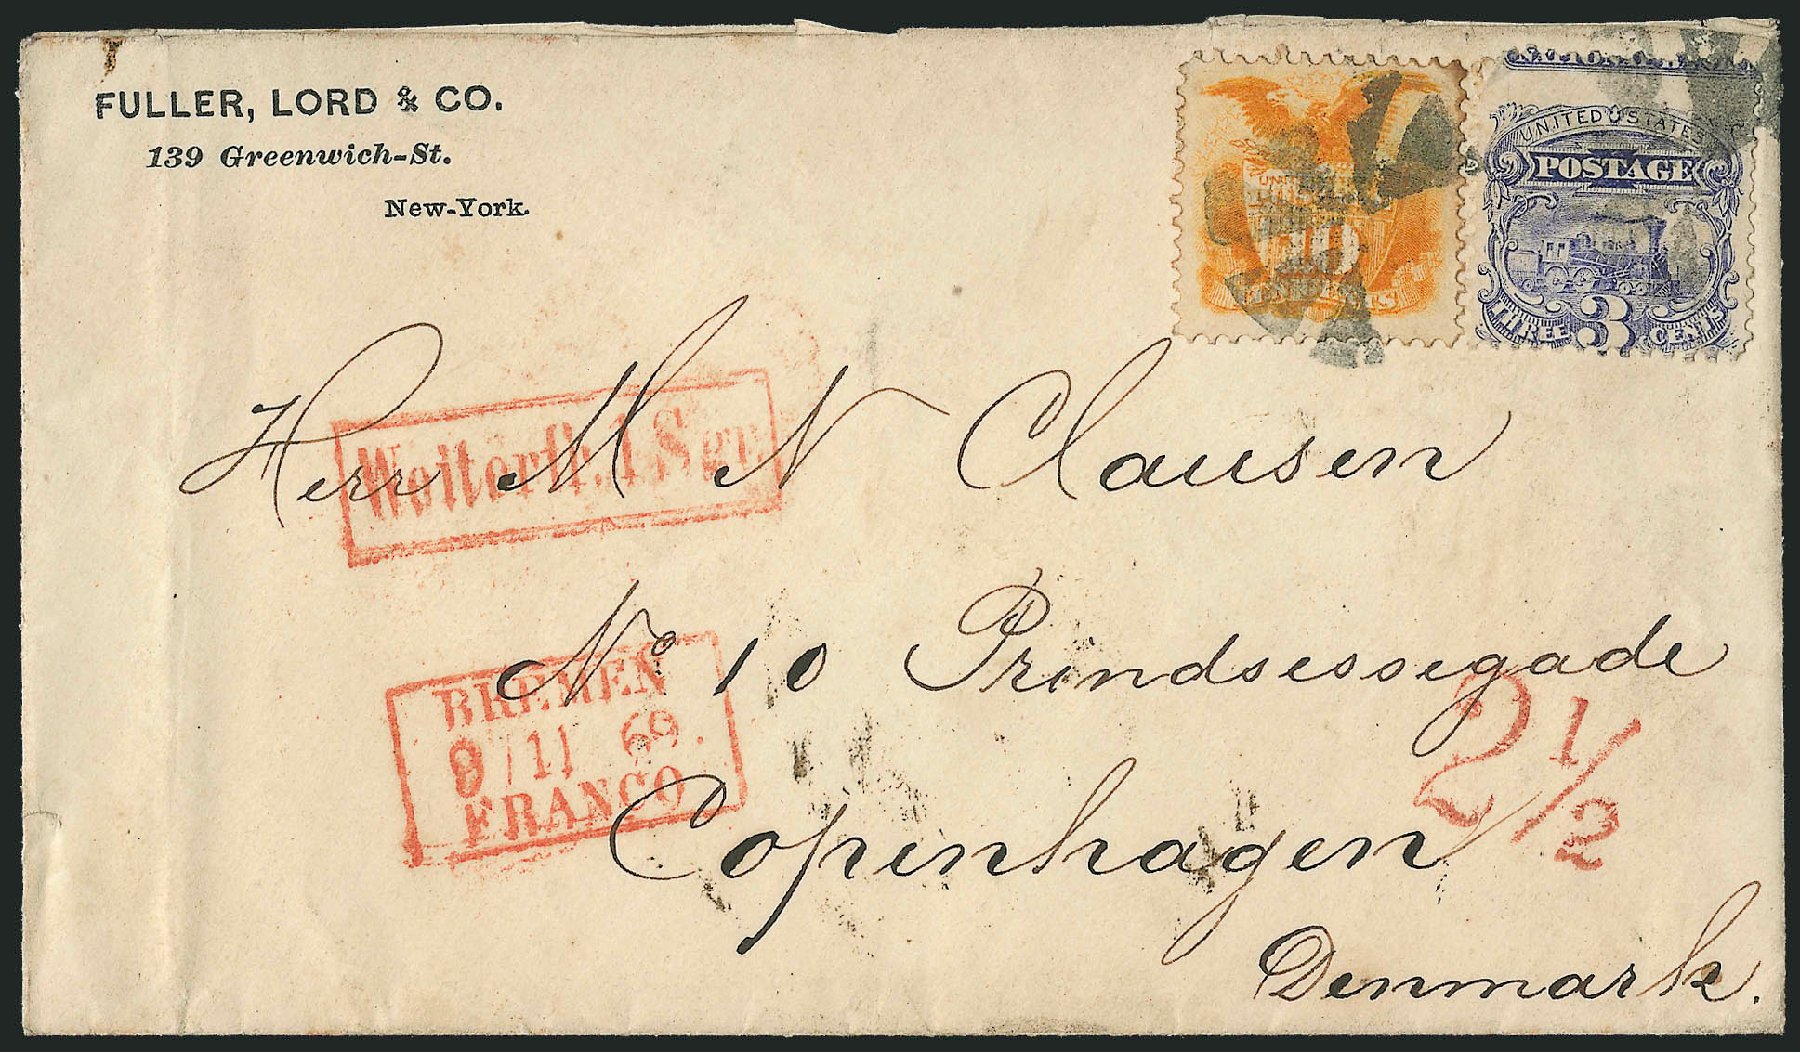 FULLER, LORD & CO.
139 Greenwich-St.
New-York.
UNITED STATES
POSTAGE
THREE 3 CENTS
10
TEN CENTS
Herr M N Clausen
Weiterfr. 1 Sgr.
No 10 Prindsessegade
BREMEN
9/11 69.
FRANCO
2 1/2
Copenhagen
Denmark.